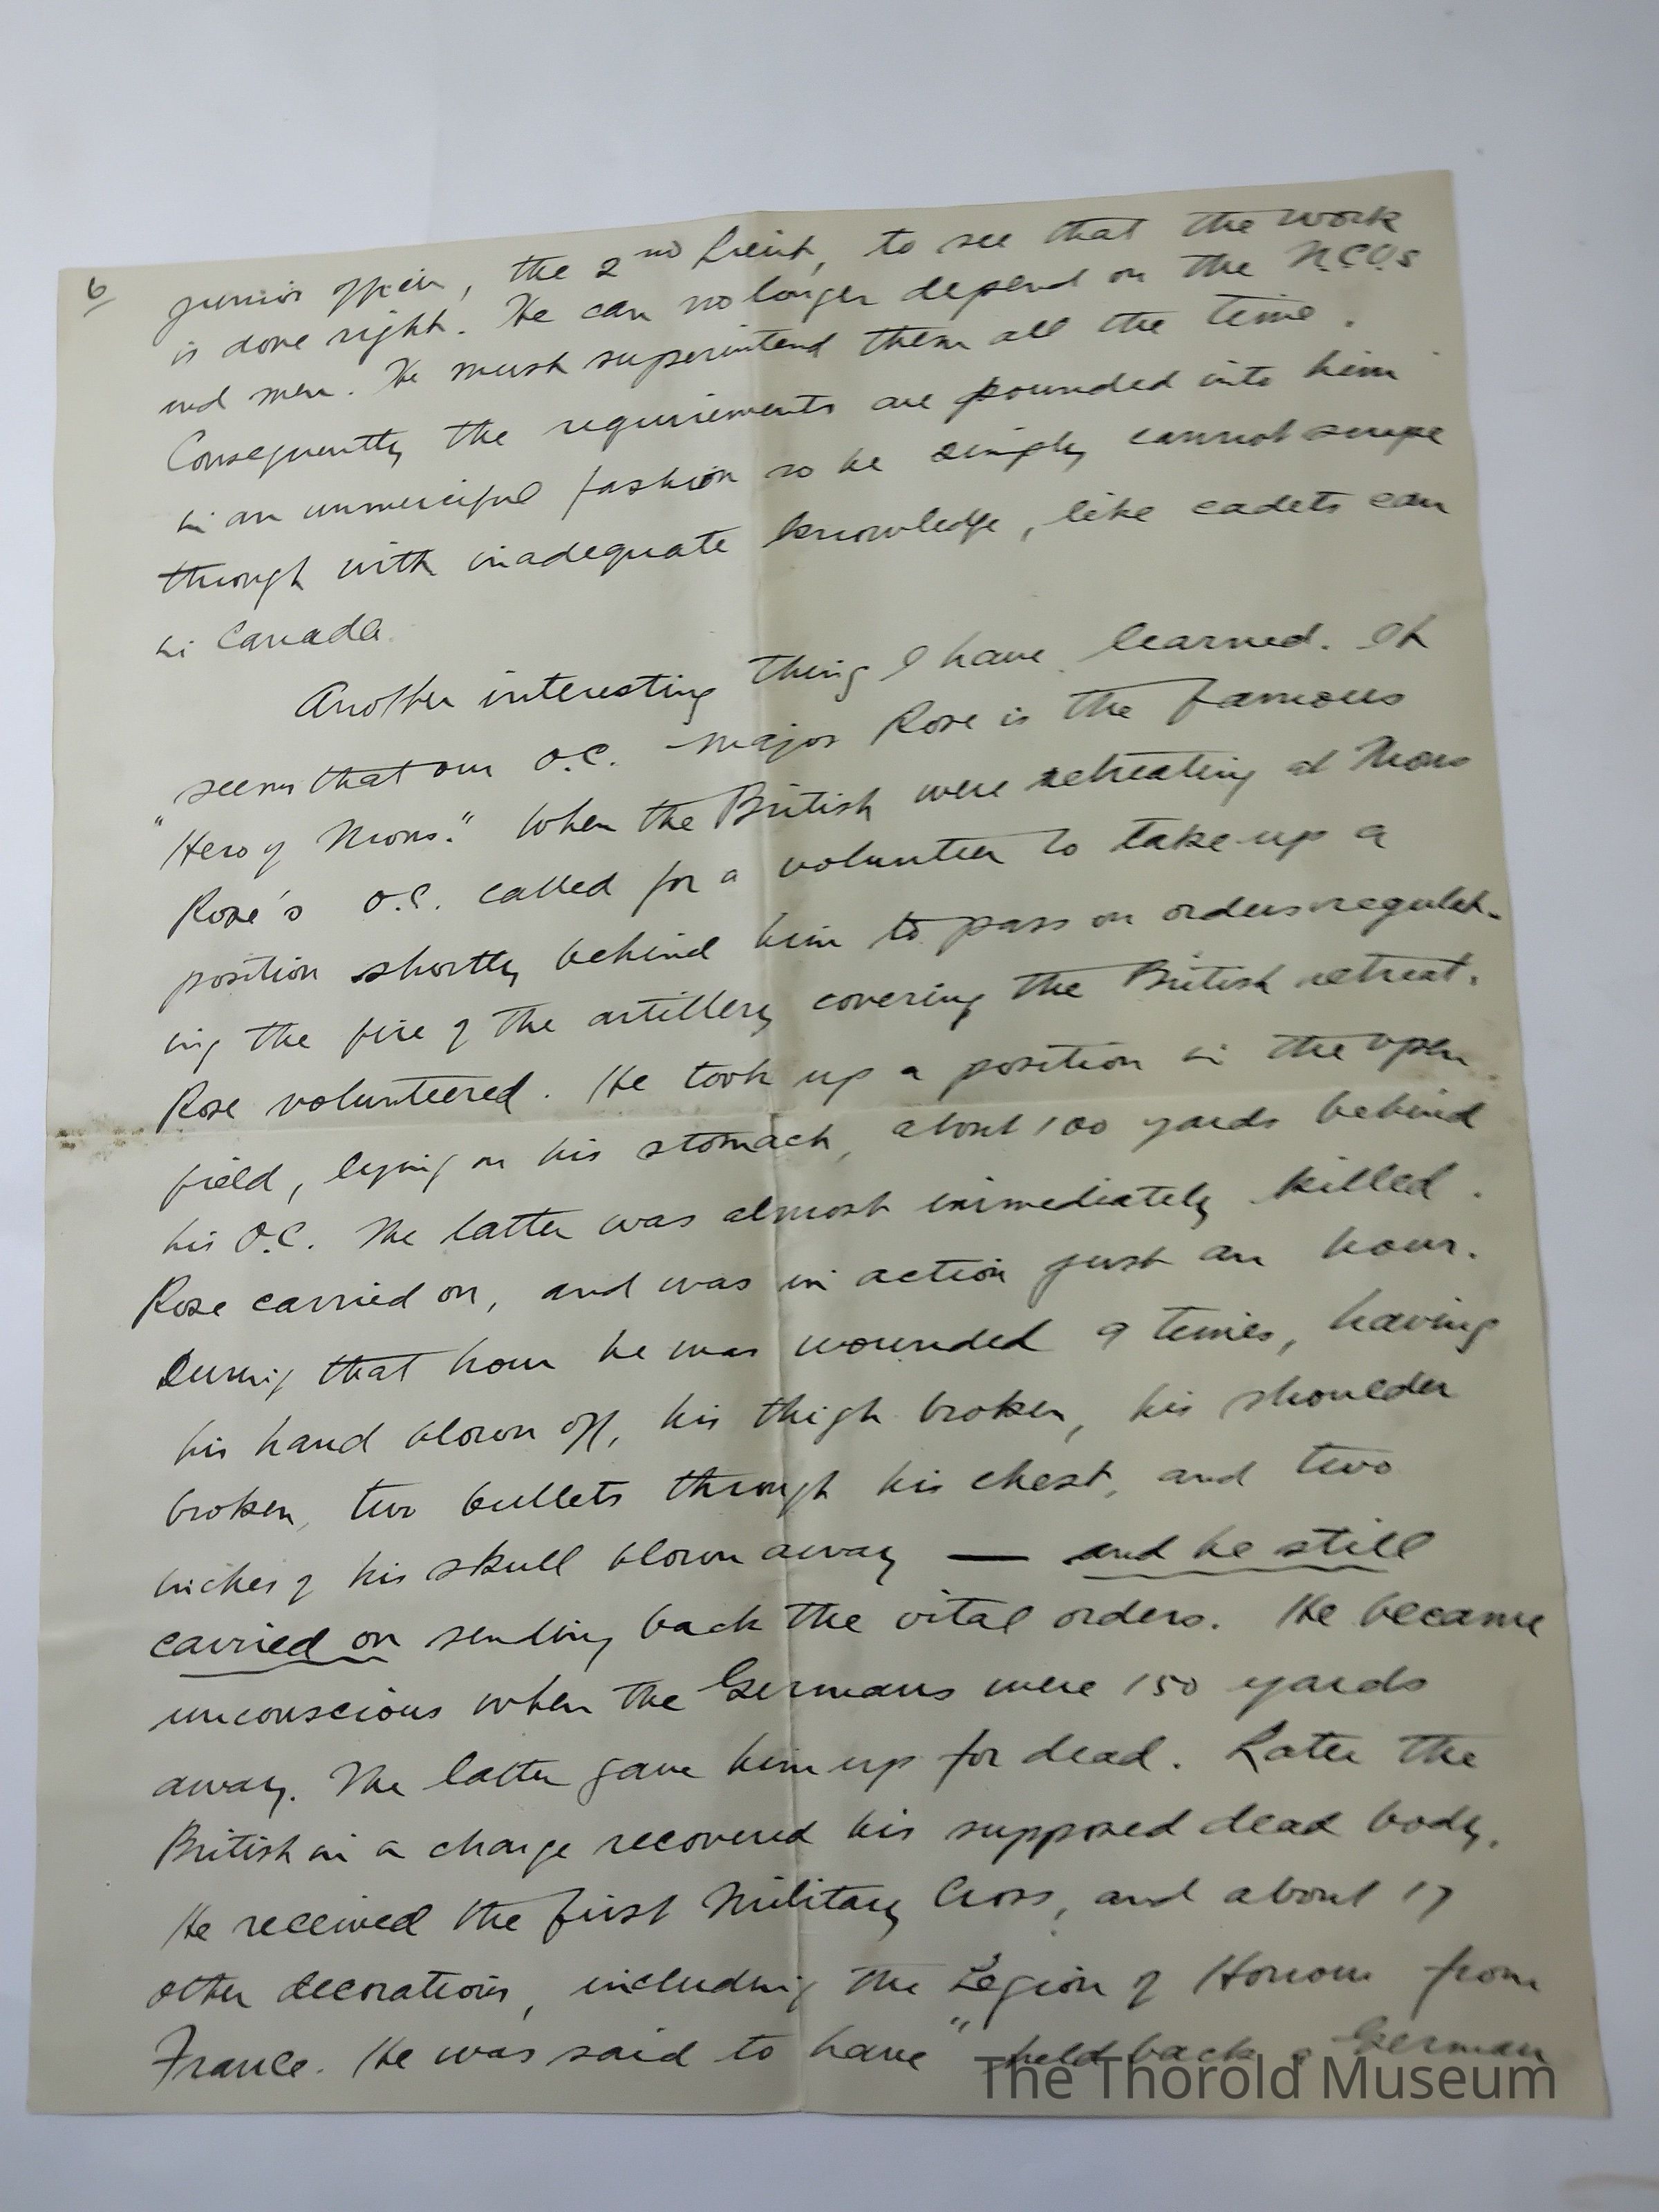 6/
junior officer, the 2nd Lieut, to see that the work
is done right. He can no longer depend on the N.C.O.s
and men. He must superintend them all the time.
Consequently the requirements are pounded into him
in an unmerciful fashion so he simply cannot scrape
through with inadequate knowledge, like cadets can
in Canada.
Another interesting thing I have learned. It
seems that our O.C. Major Rose is the famous
"Hero of Mons." When the British were retreating at Mons
Rose's O.C. called for a volunteer to take up a
position shortly behind him to pass on orders regulat-
ing the fire of the artillery covering the British retreat.
Rose volunteered. He took up a position in the open
field, lying on his stomach, about 100 yards behind
his O.C. The latter was almost immediately killed.
Rose carried on, and was in action just an hour.
During that hour he was wounded 9 times, having
his hand blown off, his thigh broken, his shoulder
broken, two bullets through his chest, and two
inches of his skull blown away — and he still
carried on sending back the vital orders. He became
unconscious when the Germans were 150 yards
away. The latter gave him up for dead. Later the
British in a charge recovered his supposed dead body.
He received the first Military Cross, and about 17
other decorations, including the Legion of Honour from
France. He was said to have "held back a German
The Thorold Museum